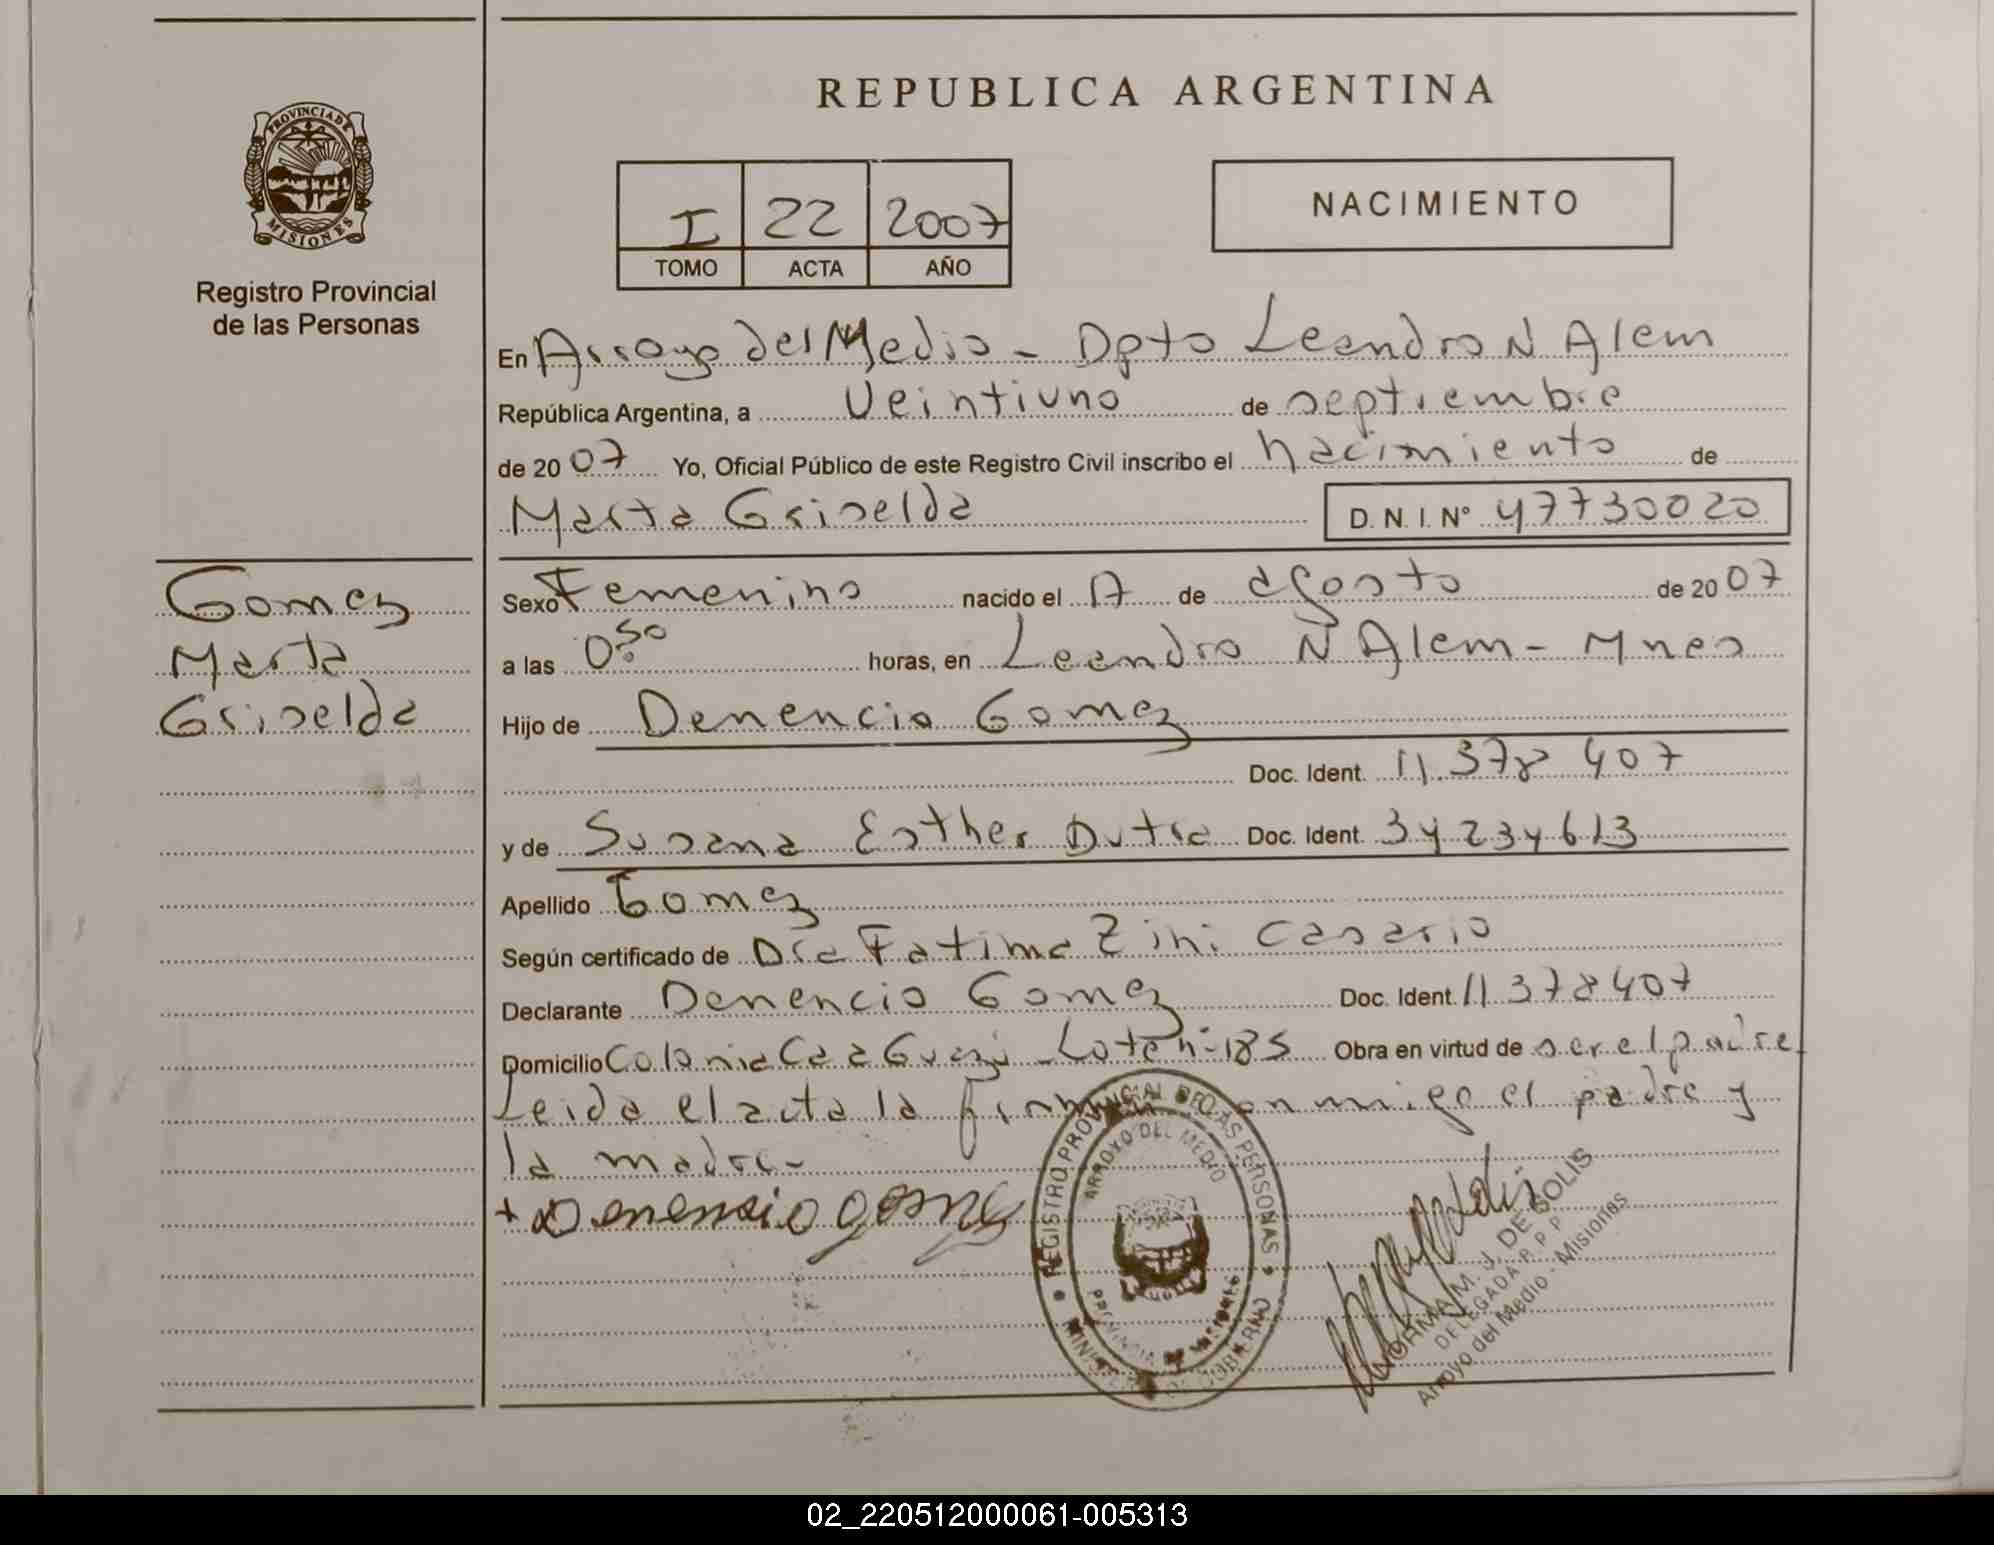 REPUBLICA ARGENTINA
PROVINCIA DE
MISIONES
Registro Provincial
de las Personas
I 22 2007
TOMO ACTA AÑO
NACIMIENTO
En Arroyo del Medio - Dpto Leandro N Alem
República Argentina, a Veintiuno de septiembre
de 20 07 Yo, Oficial Público de este Registro Civil inscribo el nacimiento de
Marta Griselda D.N.I. N° 47730020
Gomez
Marta
Griselda
Sexo Femenino nacido el 17 de agosto de 20 07
a las 0:50 horas, en Leandro N Alem - Mnes
Hijo de Denencio Gomez
Doc. Ident. 11.378 407
y de Susana Esther Dutra Doc. Ident. 34 234 613
Apellido Gomez
Según certificado de Dra Fatima Zini Casario
Declarante Denencio Gomez Doc. Ident. 11 378 407
Domicilio Colonia Caa Guazu - Lote n- 185 Obra en virtud de ser el padre
Leida el acta la firman conmigo el padre y
la madre -
+ Denencio gomez
REGISTRO PROVINCIAL DE LAS PERSONAS
ARROYO DEL MEDIO
PROVINCIA DE MISIONES
MINISTERIO DE GOBIERNO
NORMA M. J. DE SOLIS
DELEGADA R. P. P.
Arroyo del Medio - Misiones
02_220512000061-005313